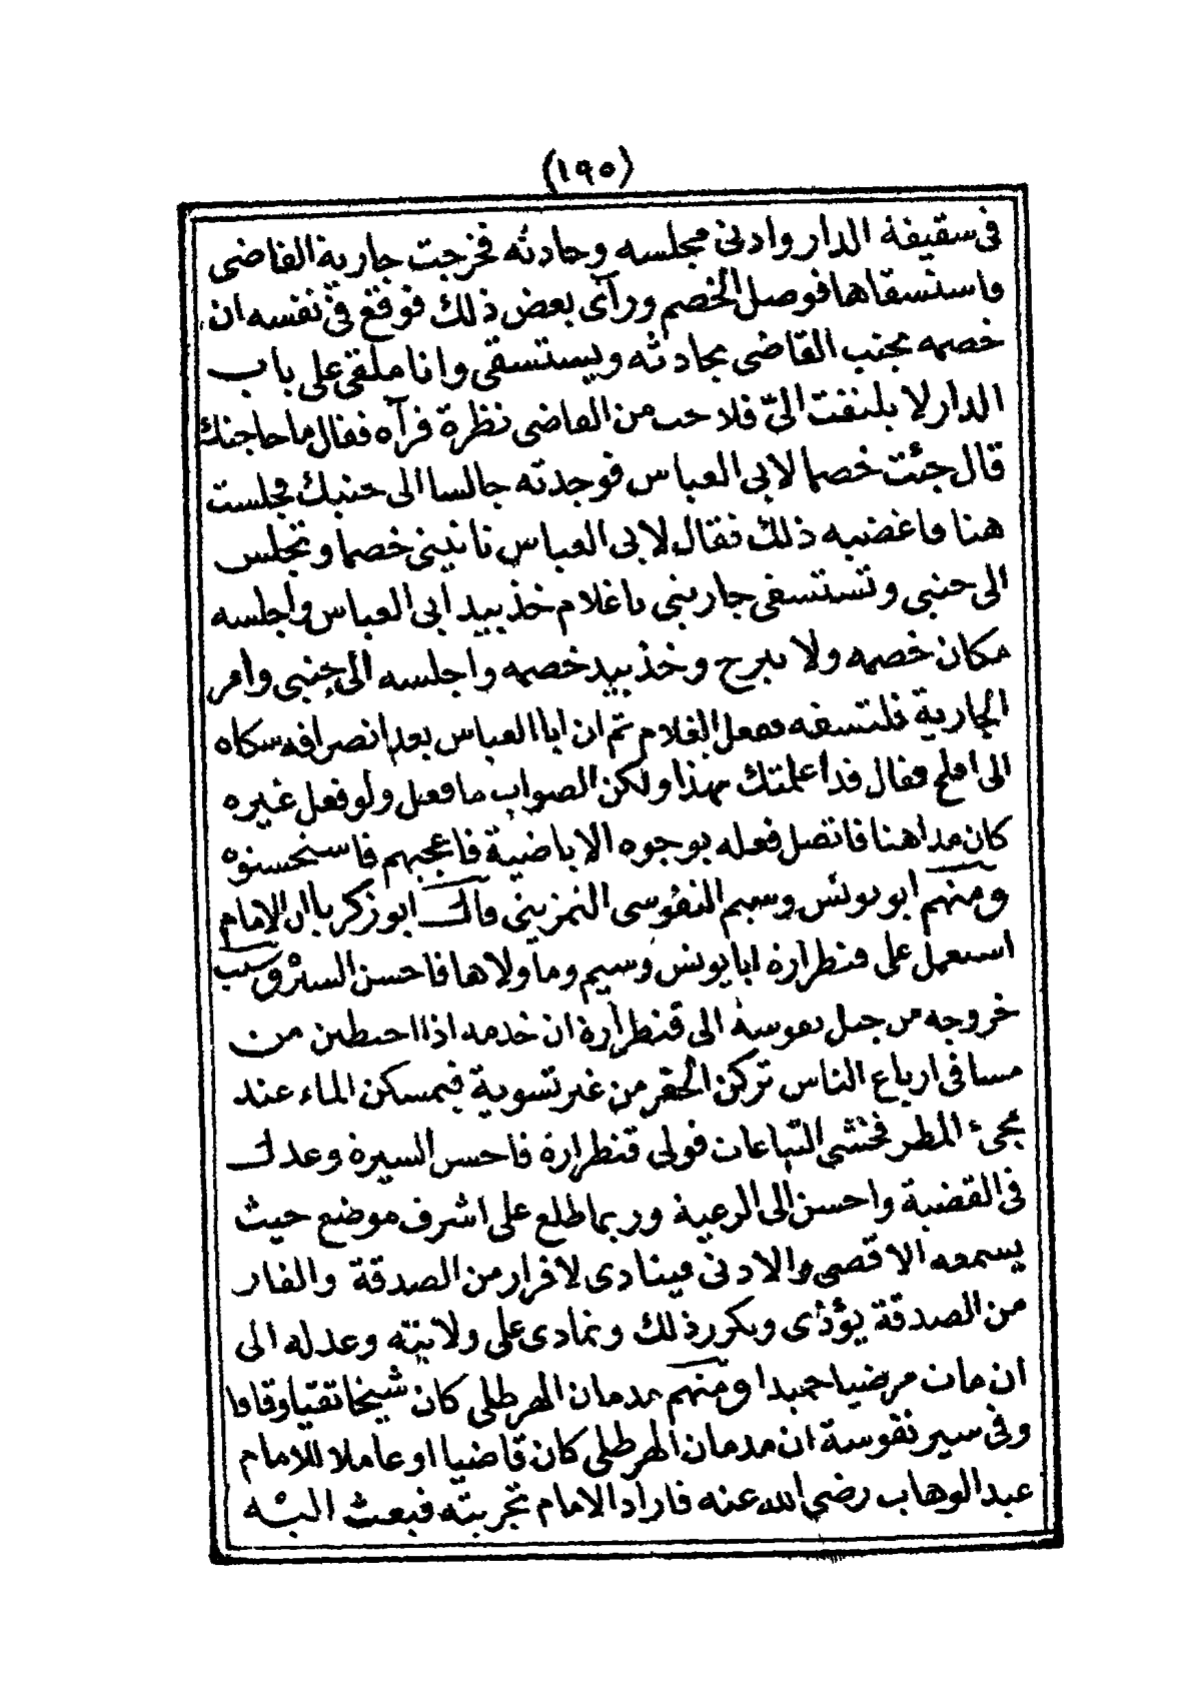 (١٩٥)
فى سقيفة الدار وادنى مجلسه وحادثه فخرجت جارية القاضى
فاستسقاها فوصل الخصم ورآى بعض ذلك فوقع فى نفسه ان
خصمه بجنب القاضى يحادثه ويستسقى وانا ملقى على باب
الدار لا يلتفت الىّ فلاحت من القاضى نظرة فرآه فقال ما حاجتك
قال جئت خصما لابى العباس فوجدته جالسا الى جنبك فجلست
هنا فاغضبه ذلك فقال لابى العباس تاتينى خصما وتجلس
الى جنبى وتستسقى جاريتى يا غلام خذ بيد ابى العباس واجلسه
مكان خصمه ولا يبرح وخذ بيد خصمه واجلسه الى جنبى وامر
الجارية فلتسقه ففعل الغلام ثم ان ابا العباس بعد انصرافه شكاه
الى افلح فقال قد اعلمتك بهذا ولكن الصواب ما فعل ولو فعل غيره
كان مداهنا فاتصل فعله بوجوه الاباضية فاعجبهم فاستحسنوه
ومنهم ابو يونس وسيم النفوسى التمزينى قال ابو زكريا ان الامام
استعمل على قنطرارة ابا يونس وسيم وما ولاها فاحسن السيرة وسبب
خروجه من جبل نفوسة الى قنطرارة ان خدمه اذا احتطبن من
مسافى ارباع الناس تركن الحفر من غير تسوية فيمسكن الماء عند
مجىء المطر فخشى التباعات فولى قنطرارة فاحسن السيرة وعدل
فى القضية واحسن الى الرعية وربما طلع على اشرف موضع حيث
يسمعه الاقصى والادنى فينادى لا فرار من الصدقة والفار
من الصدقة يؤذى ويكرر ذلك وتمادى على ولايته وعدله الى
ان مات مرضيا حميدا ومنهم مدمان الهرطلى كان شيخا تقيا وقافا
وفى سير نفوسة ان مدمان الهرطلى كان قاضيا او عاملا للامام
عبد الوهاب رضى الله عنه فاراد الامام تجربته فبعث اليه